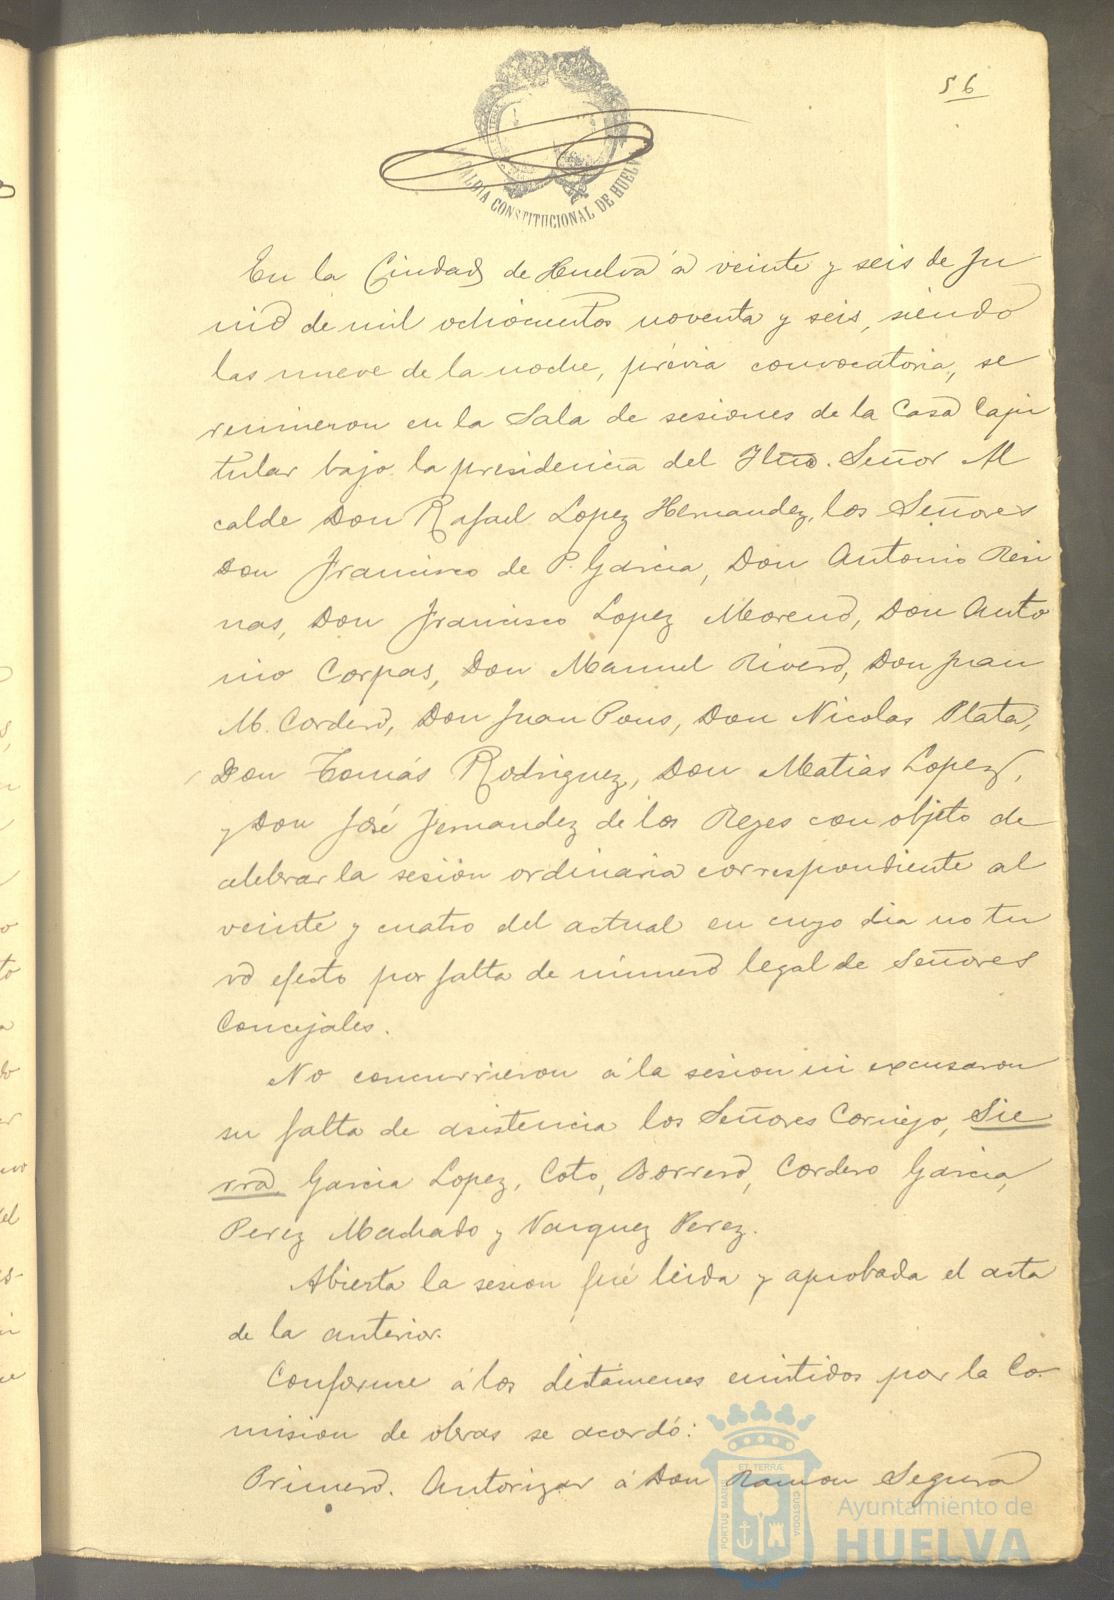 56
ALCALDIA CONSTITUCIONAL DE HUELVA
En la Ciudad de Huelva á veinte y seis de Ju
nio de mil ochocientos noventa y seis, siendo
las nueve de la noche, prévia convocatoria, se
reunieron en la Sala de sesiones de la Casa Capi
tular bajo la presidencia del Iltmo. Señor Al
calde Don Rafael Lopez Hernandez, los Señores
Don Francisco de P. Garcia, Don Antonio Resi
nas, Don Francisco Lopez Moreno, Don Anto
nio Corpas, Don Manuel Rivero, Don Juan
M. Cordero, Don Juan Pons, Don Nicolas Plata,
Don Tomás Rodriguez, Don Matias Lopez,
y Don José Fernandez de los Reyes con objeto de
celebrar la sesión ordinaria correspondiente al
veinte y cuatro del actual en cuyo dia no tu
vo efecto por falta de número legal de Señores
Concejales.
No concurrieron á la sesion ni excusaron
su falta de asistencia los Señores Cornejo, Sie
rra, Garcia Lopez, Coto, Borrero, Cordero Garcia,
Perez Machado y Vazquez Perez.
Abierta la sesion fué leida y aprobada el acta
de la anterior.
Conforme á los dictámenes emitidos por la Co-
mision de obras se acordó:
Primero. Autorizar á Don Ramon Segura
PORTUS MARIS ET TERRÆ CUSTODIA
Ayuntamiento de
HUELVA